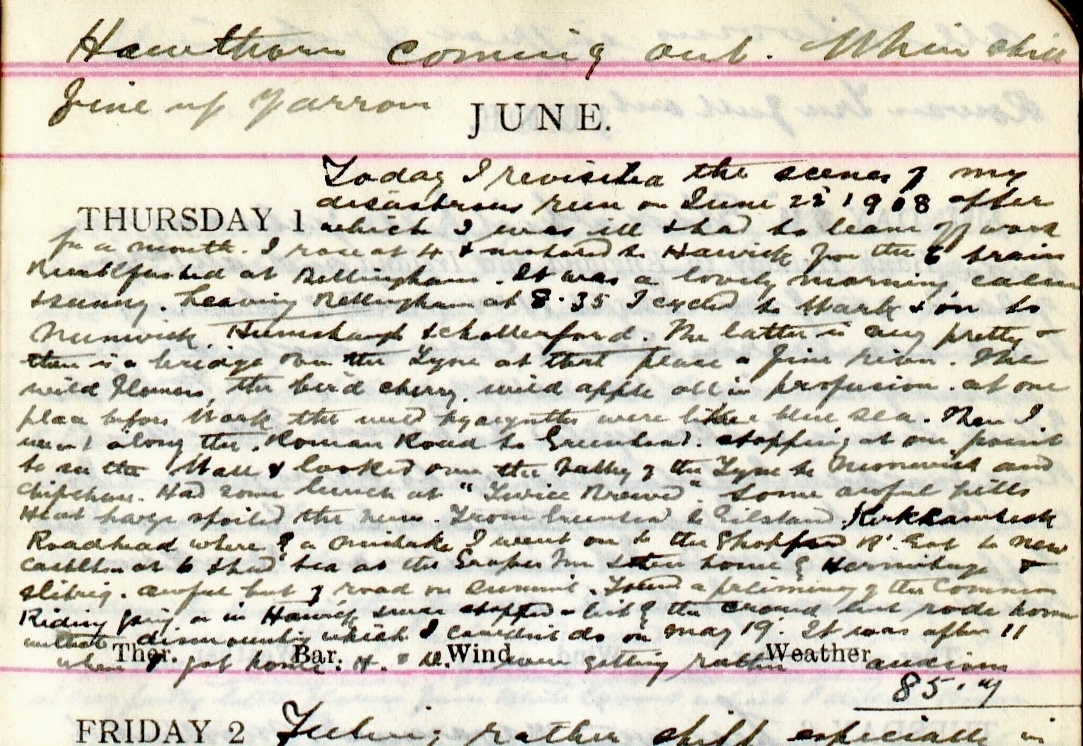 Hawthorn coming out. Whin still
fine up Yarrow
JUNE.
Today I revisited the scenes of my
disastrous run on June 22 1908 after
THURSDAY 1 which I was ill & had to leave off work
for a month. I rose at 4 & to Hawick for the 6 train
Breakfasted at Bellingham. It was a lovely morning, calm
& sunny. Leaving Bellingham at 8.35 I cycled to Wark & on to
Nunwick, Humshaugh & Chollerford. The latter is very pretty &
there is a bridge over the Tyne at that place a fine river. The
wild flowers, the bird cherry, wild apple all in profusion. At one
place before Wark the wild hyacynths were like a blue sea. Then I
went along the Roman Road to Greenhead, stopping at one point
to see the Wall & looked over the Valley of the Tyne to and
Had some lunch at "Twice Brewed" Some awful hills
Heat haze spoiled the view. From Greenhead to Gilsland, Kirkcambeck
Roadhead where by a mistake I went on to the Got to New
Castleton at 6 & had tea at the Grapes Inn & then home by Hermitage &
Slitrig. Awful bit of road on summit. Found a of the Common
Riding going on in Hawick & was stopped a bit by the crowd but rode home
without dismounting which I couldn't do on May 19. It was after 11
Ther. Bar. Wind Weather
when I got home. H. & were getting rather anxious
85
FRIDAY 2 Feeling rather stiff especially in